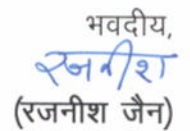 भवदीय,
रजनीश
(रजनीश जैन)